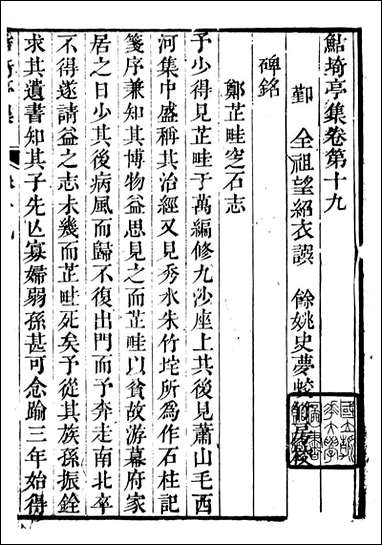 鮚埼亭集卷第十九
鄞 全祖望紹衣譔 餘姚史夢蛟竹房校
碑銘
鄭芷畦窆石志
予少得見芷畦于萬編修九沙座上其後見蕭山毛西
河集中盛稱其治經又見秀水朱竹垞所爲作石柱記
箋序兼知其博物益思見之而芷畦以貧故游幕府家
居之日少其後病風而歸不復出門而予奔走南北卒
不得遂請益之志未幾而芷畦死矣予從其族孫振銓
求其遺書知其子先亾寡婦弱孫甚可念踰三年始得